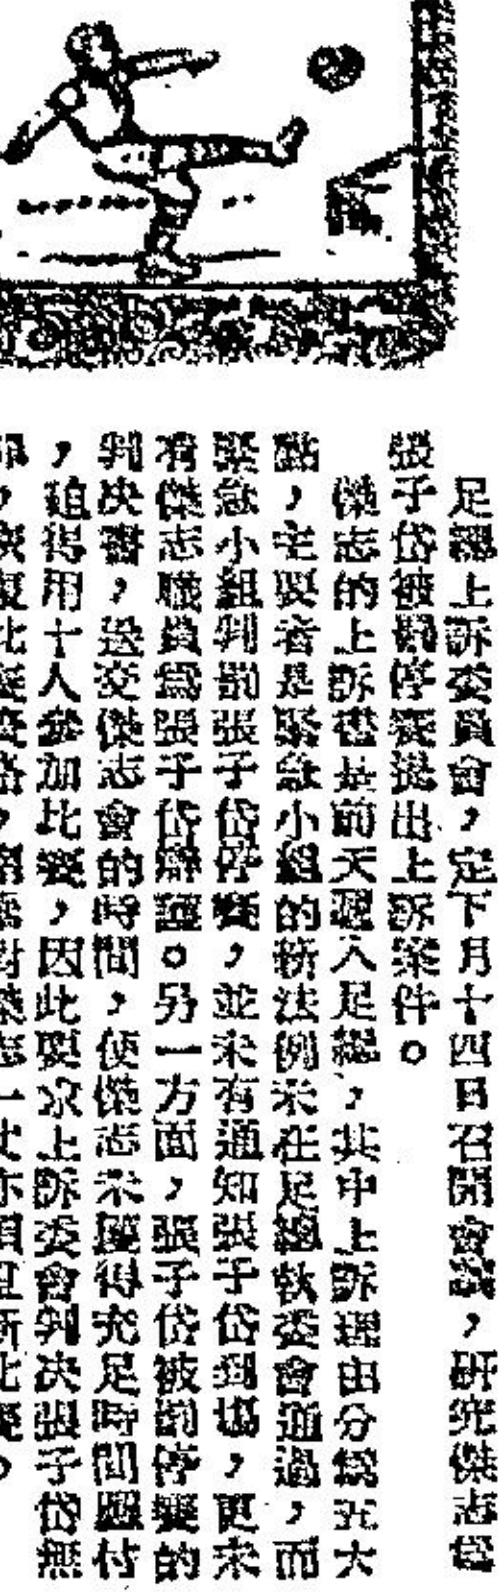 足總上訴委員會，定下月十四日召開會議，研究傑志為
張子岱被罰停賽提出上訴案件。
傑志的上訴書是前天遞入足總，其中上訴理由分為五大
點，主要者是緊急小組的新法例未在足總執委會通過，而
緊急小組判罰張子岱停賽，並未有通知張子岱到場，更未
有傑志職員為張子岱辯護。另一方面，張子岱被罰停賽的
判决書，送交傑志會的時間，使傑志未獲得充足時間應付
，迫得用十人參加比賽，因此要求上訴委會判决張子岱無